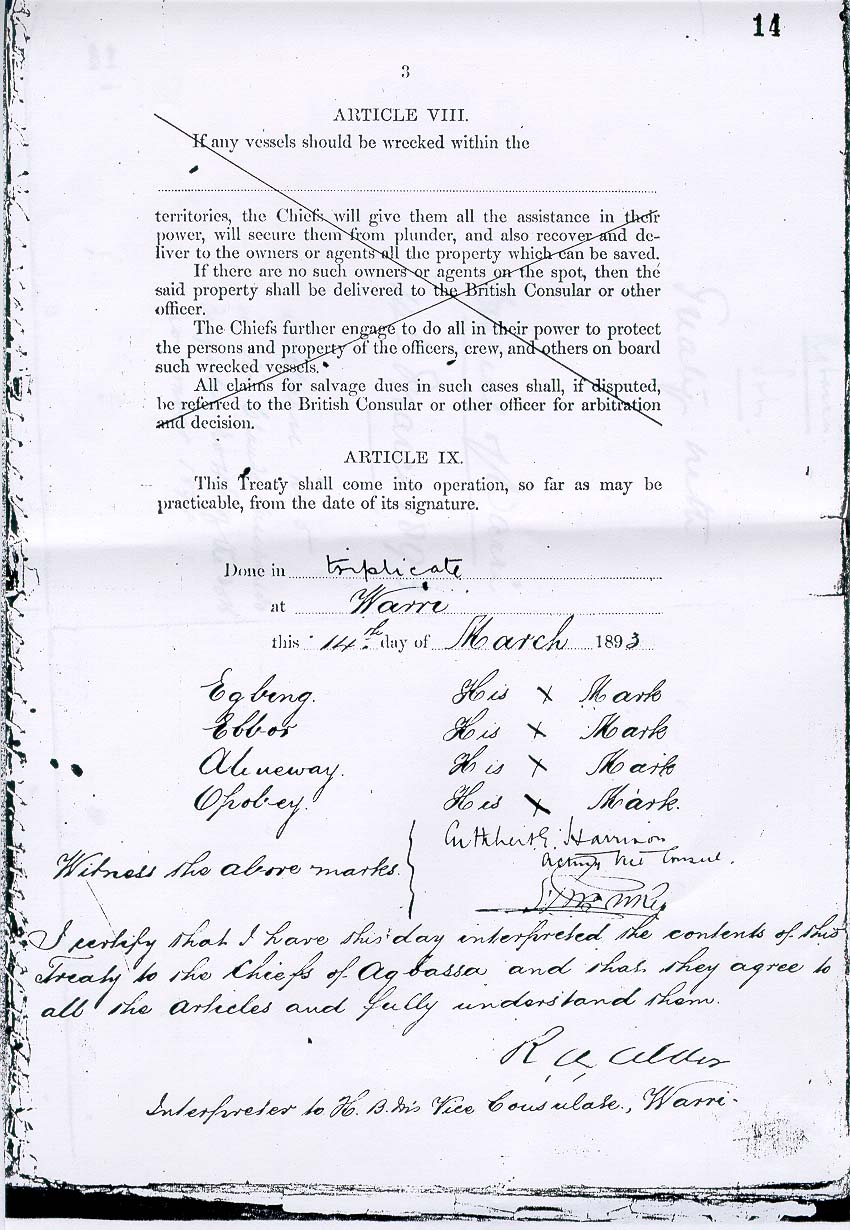 14
3
ARTICLE VIII.
If any vessels should be wrecked within the
territories, the Chiefs will give them all the assistance in their
power, will secure them from plunder, and also recover and de-
liver to the owners or agents all the property which can be saved.
If there are no such owners or agents on the spot, then the
said property shall be delivered to the British Consular or other
officer.
The Chiefs further engage to do all in their power to protect
the persons and property of the officers, crew, and others on board
such wrecked vessels.
All claims for salvage dues in such cases shall, if disputed,
be referred to the British Consular or other officer for arbitration
and decision.
ARTICLE IX.
This Treaty shall come into operation, so far as may be
practicable, from the date of its signature.
Done in triplicate
at Warri
this 14th day of March 1893
Egbeng. His X Mark
Ebbor His X Mark
Abeneway. His X Mark
Opobey. His X Mark.
Cuthbert E. Harrison
Acting Vice Consul.
Witness the above marks.
I certify that I have this day interpreted the contents of this
Treaty to the Chiefs of Agbassa and that they agree to
all the articles and fully understand them.
R A Alder
Interpreter to H. B. M's Vice Consulate, Warri.